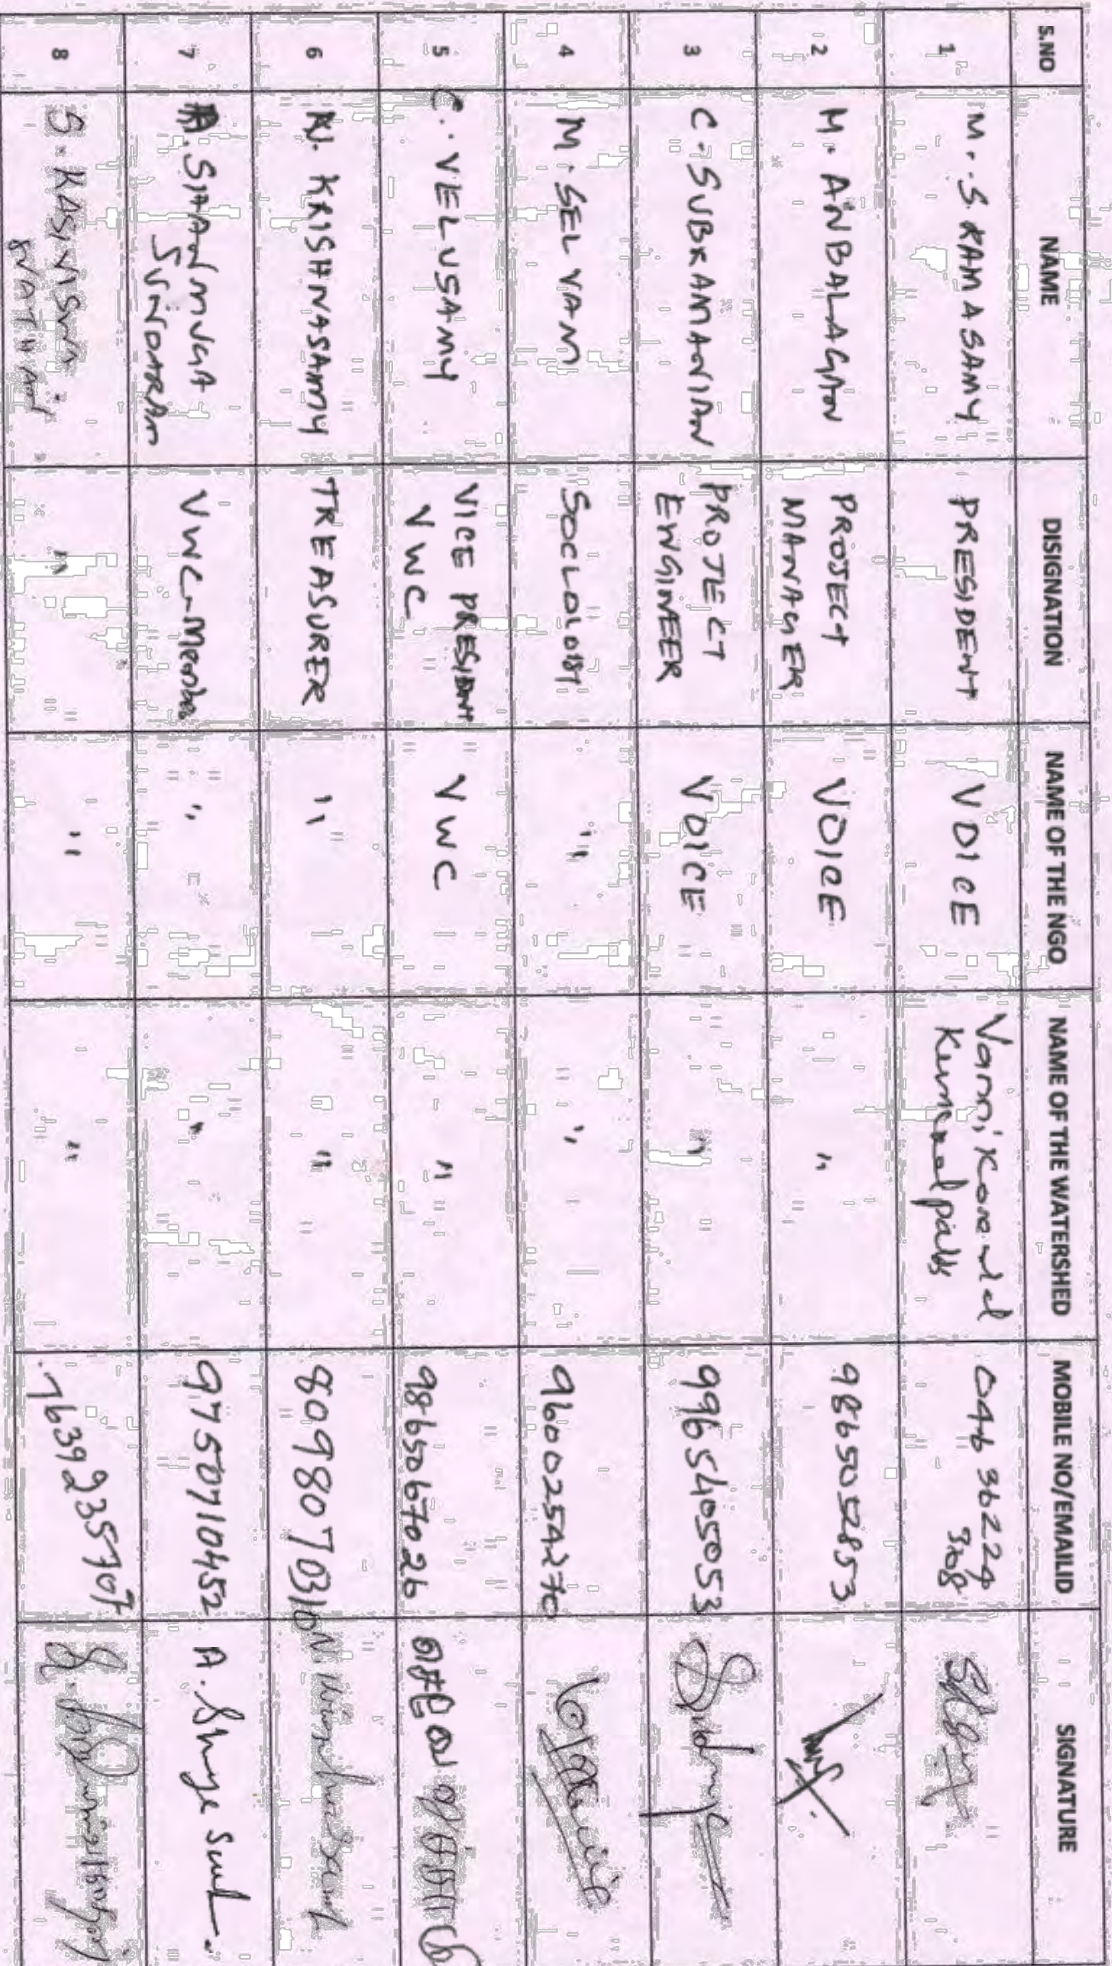 S.NO NAME DISIGNATION NAME OF THE NGO NAME OF THE WATERSHED MOBILE NO/EMAILID SIGNATURE
1 M. S RAMASAMY PRESIDENT VOICE Vanni Konendel 046 36229
308
2 M. ANBALAGAN PROJECT MANAGER VOICE " 9865052853
3 C. SUBRAMANIAN PROJECT ENGINEER VOICE " 9965405053
4 M. SELVAM SOCLOLOIST " " 9600254270
5 C. VELUSAMY VICE PRESIDENT VWC VWC " 9865067026
6 N. KRISHNASAMY TREASURER " " 8098070310
7 A. SHANMUGA SUNDARAM VWC-Member " " 9750710452
8 S. KASIVISWA " " " 7639235707